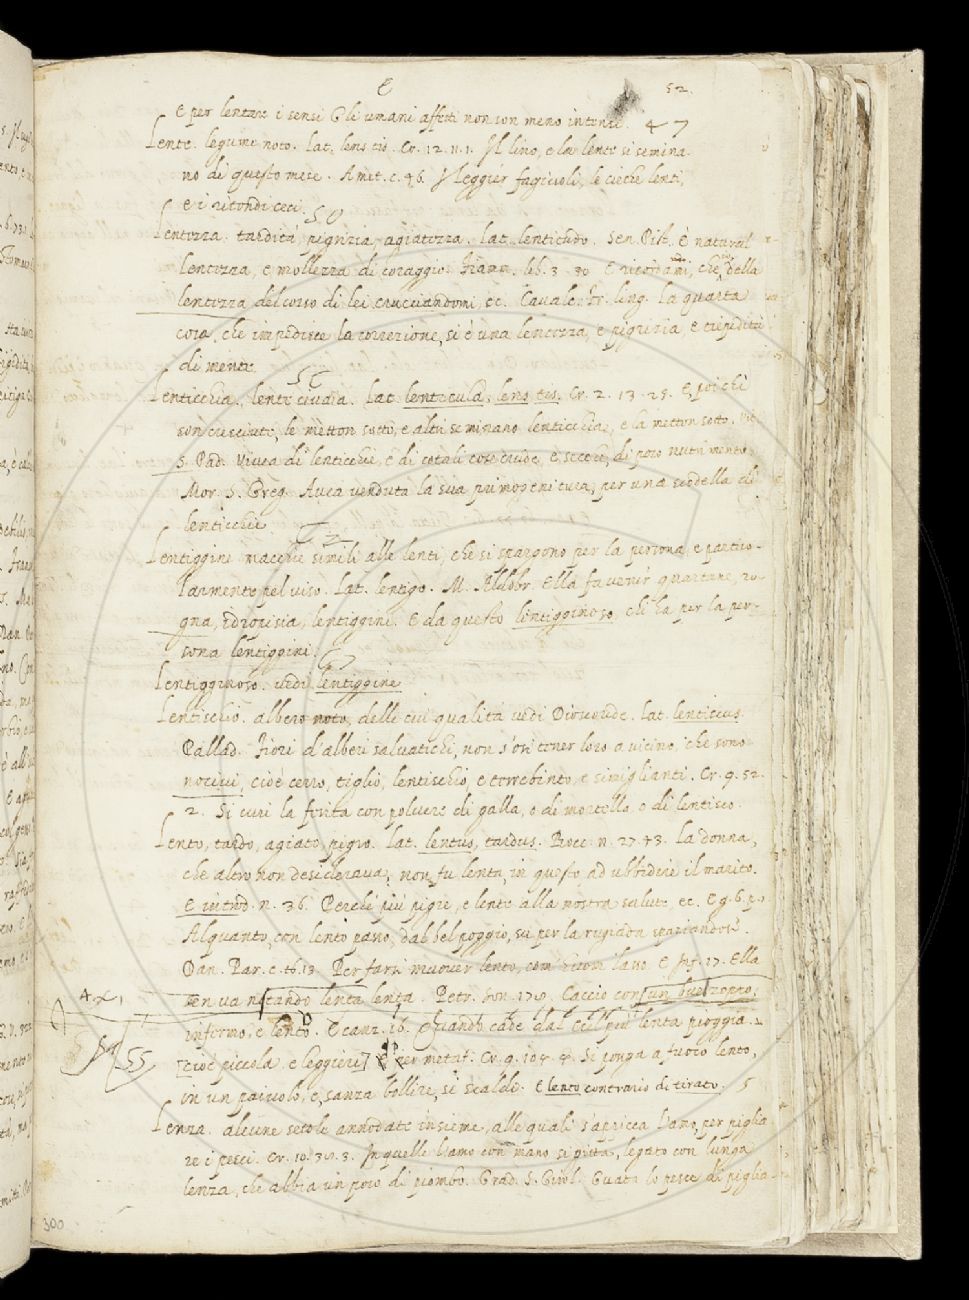 e 52.
e per lentare i sensi gli umani affetti non son meno intensi. 47
Lente. legume noto. Lat. lens tis. Cr. 12. 11. 1. Il lino, e la lente si semina
no di questo mese. Amet. c. 46. I leggier fagiuoli, le cieche lenti,
e i ritondi ceci. 50
Lentezza. tardità, pigrizia, agiatezza. Lat. lentitudo. Sen. Pist. È natural
lentezza, e mollezza di coraggio. Fiamm. lib. 3. 30. E ricordami, che della
lentezza del corso di lei crucciandomi, ec. Cavalc. fr. ling. La quarta
cosa, che impedisce la correzione, si è una lentezza, e pigrizia, e tepidità
di mente.
Lenticchia. lente cruda. Lat. lenticula, lens tis. Cr. 2. 13. 25. E, poichè
son cresciuti, le metton sotto, e altri seminano lenticchie, e la metton sotto. Vit.
S. Pad. Vivea di lenticchie, e di cotali cose crude, e secche, di poco nutrimento.
Mor. S. Greg. Avea venduta la sua primogenitura, per una scodella di
lenticchie
Lentiggine. macchie simili alle lenti, che si spargono per la persona, e partico-
larmente pel viso. Lat. lentigo. M. Aldobr. Ella fa venir quartane, ro-
gna, idropisia, lentiggini. E da questo lentigginoso, chi ha per la per-
sona lentiggini.
Lentigginoso. vedi lentiggine
Lentischio. albero noto, delle cui qualità vedi Dioscoride. Lat. lentiscus.
Pallad. Fiori d'alberi salvatichi, non s'en tener loro a vicino, che sono
nocivi, cioè cerro, tiglio, lentischio, e terrebinto, e simiglianti. Cr. 9. 52.
2. Si curi la ferita con polvere di galla, o di mortella, o di lentisco.
Lento, tardo, agiato, pigro. Lat. lentus, tardus. Bocc. n. 27. 43. La donna,
che altro non desiderava, non fu lenta, in questo ad ubbidire il marito.
E introd. n. 36. Perchè più pigre, e lente alla nostra salute, ec. E g. 6. p.
Alquanto, con lento passo, dal bel poggio, su per la rugiada spaziandosi.
Dan. Par. c. 16. 13. Per farsi muover lento, com' huom lasso. E Inf. 17. Ella
sen va notando lenta lenta. Petr. son. 170. Caccio con un bue zoppo,
4 x 1
infermo, e lento. E canz. 16. Quando cade dal Ciel più lenta pioggia.
54 55
[cioè piccola, e leggieri] E per metaf. Cr. 9. 104. 4. Si ponga a fuoco lento,
in un paiuolo, e, sanza bollire, si scaldi. E lento contrario di tirato. 5
Lenza. alcune setole annodate insieme, alle quali s'appicca l'amo, per piglia
re i pesci. Cr. 10. 38. 3. In quelle l'amo con mano si pitta, legato con lunga
lenza, che abbia un poco di piombo. Grad. S. Girol. Guata lo pesce di piglia-
300